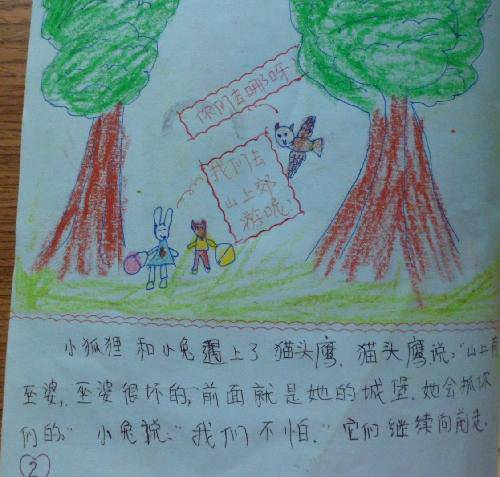 你们去哪呀!
我们去
山上郊
游呢。
小狐狸和小兔遇上了猫头鹰，猫头鹰说："山上有
巫婆，巫婆很坏的，前面就是她的城堡，她会抓你
们的。" 小兔说："我们不怕。"它们继续向前走。
2